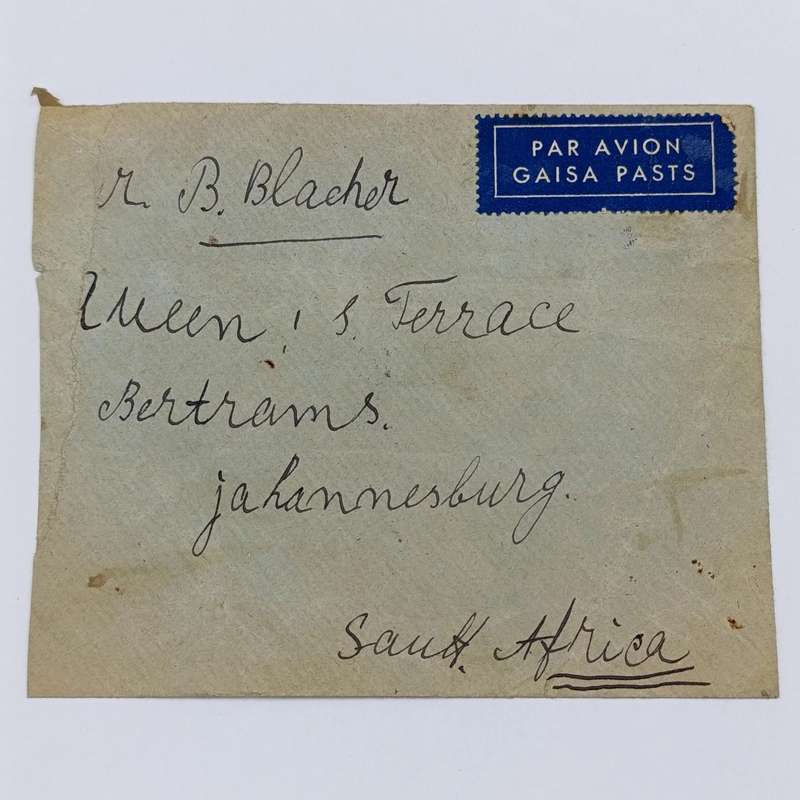 PAR AVION
GAISA PASTS
r. B. Blacher
Queen's Terrace
Bertrams.
Jahannesburg.
Sauth. Africa